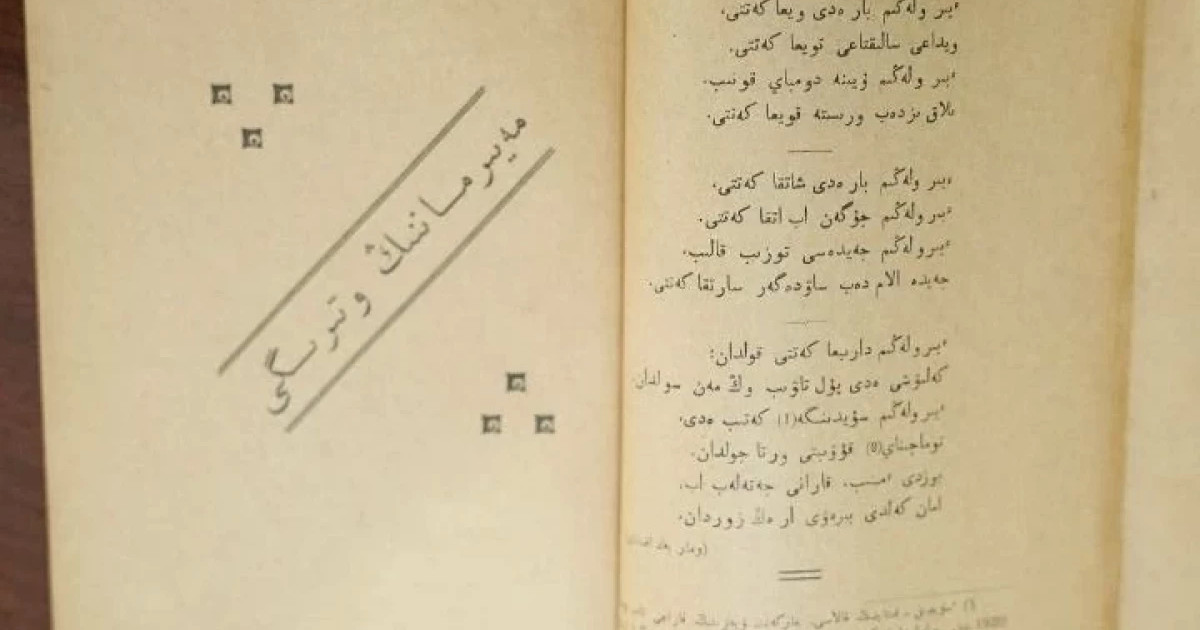 مەيىرماننىڭ وتىرىگى
ٴبىر ولەڭىم بار ەدى ويعا كەتتى،
ويداعى سالىقتاعى تويعا كەتتى.
ٴبىر ولەڭىم ۇيىنە دومباي قونىب.
ىلاق ىزدەب ورىستە قويعا كەتتى.
ٴبىر ولەڭىم بار ەدى شاتقا كەتتى،
ٴبىر ولەڭىم جۇگەن اب اتقا كەتتى.
ٴبىر ولەڭىم جەيدەسى توزىب قالىب،
جەيدە الام دەب ساۋدەگەر سارتقا كەتتى.
ٴبىر ولەڭىم دارىيعا كەتتى قولدان:
كەلىۋشى ەدى پۇل تاۋىب وڭ مەن سولدان.
ٴبىر ولەڭىم سۇيدىنگە(1) كەتىب ەدى،
قۇۋىبتى ورتا جولدان.
بوزدى ٴمىنىب، قارانى جەتەلەب اب،
امان كەلدى بىرەۋى ار ەڭ زوردان.